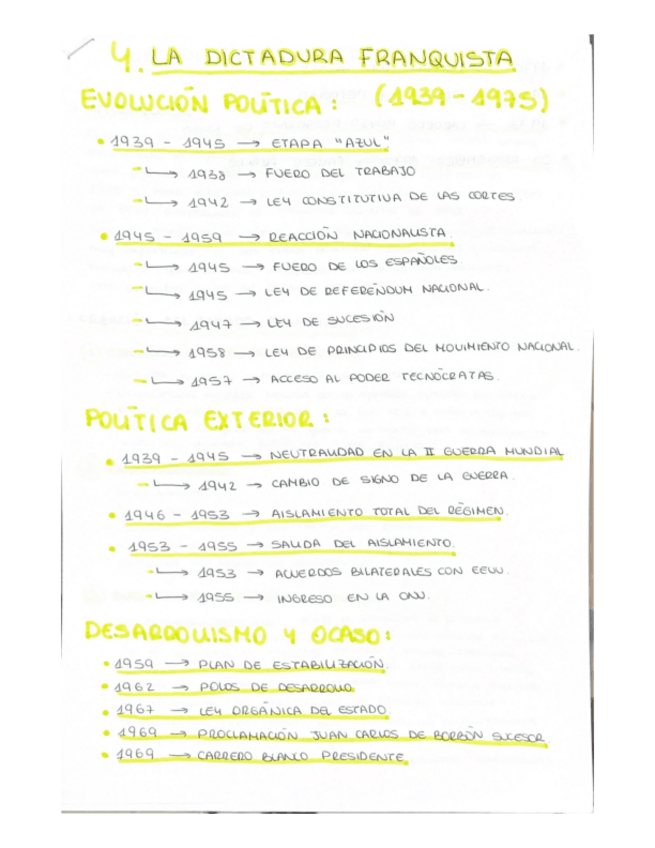 4. LA DICTADURA FRANQUISTA
EVOLUCIÓN POLÍTICA: (1939 - 1975)
• 1939 - 1945 → ETAPA "AZUL"
- ↳ 1938 → FUERO DEL TRABAJO
- ↳ 1942 → LEY CONSTITUTIVA DE LAS CORTES
• 1945 - 1959 → REACCIÓN NACIONALISTA.
- ↳ 1945 → FUERO DE LOS ESPAÑOLES.
- ↳ 1945 → LEY DE REFERÉNDUM NACIONAL.
- ↳ 1947 → LEY DE SUCESIÓN
- ↳ 1958 → LEY DE PRINCIPIOS DEL MOVIMIENTO NACIONAL.
- ↳ 1957 → ACCESO AL PODER TECNÓCRATAS.
POLÍTICA EXTERIOR:
• 1939 - 1945 → NEUTRALIDAD EN LA II GUERRA MUNDIAL
- ↳ 1942 → CAMBIO DE SIGNO DE LA GUERRA.
• 1946 - 1953 → AISLAMIENTO TOTAL DEL RÉGIMEN.
• 1953 - 1955 → SALIDA DEL AISLAMIENTO.
- ↳ 1953 → ACUERDOS BILATERALES CON EEUU.
- ↳ 1955 → INGRESO EN LA ONU.
DESARROLLISMO Y OCASO:
• 1959 → PLAN DE ESTABILIZACIÓN.
• 1962 → POLOS DE DESARROLLO.
• 1967 → LEY ORGÁNICA DEL ESTADO.
• 1969 → PROCLAMACIÓN JUAN CARLOS DE BORBÓN SUCESOR.
• 1969 → CARRERO BLANCO PRESIDENTE.